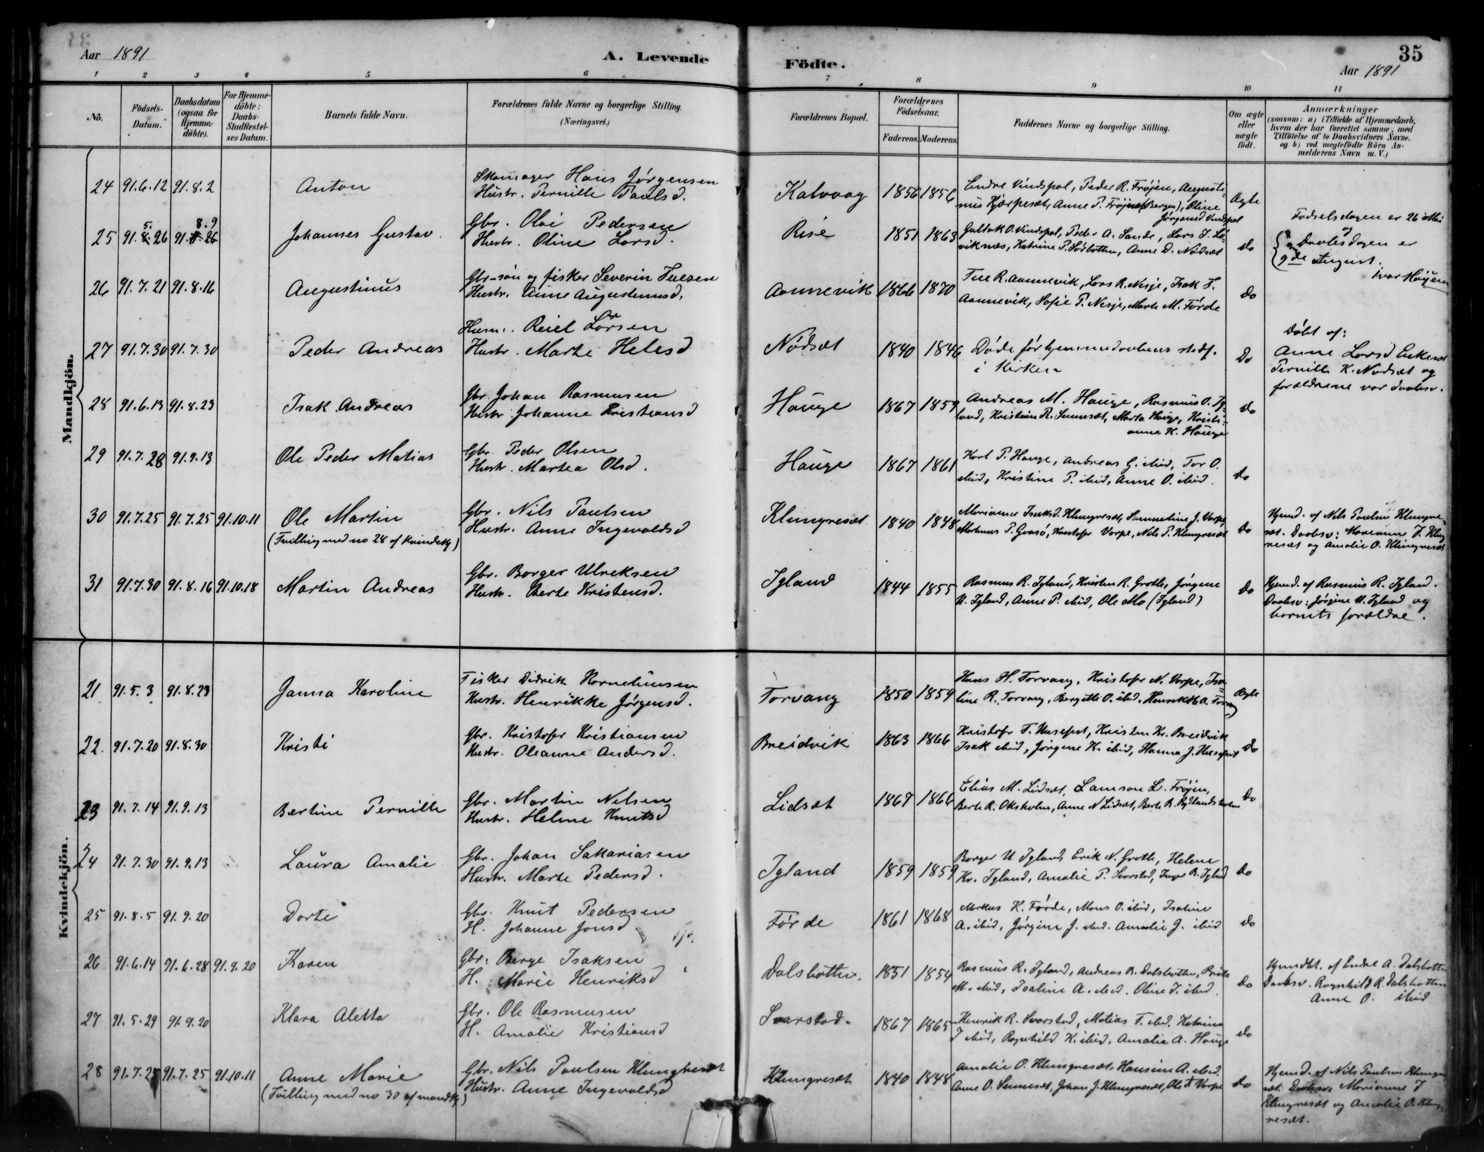 35
Aar 1891
A. Levende Fødte.
Aar 1891
1 2 3 4 5 6 7 8 9 10 11
No.
Fødsels-Datum.
Daabsdatum (ogsaa for Hjemme-døbte).
For Hjemme-døbte: Daabs-Stadfæstel-ses Datum.
Barnets fulde Navn.
Forældrenes fulde Navne og borgerlige Stilling. (Næringsvei.)
Forældrenes Bopæl.
Forældrenes Fødselsaar.
Faderens. Moderens.
Faddernes Navne og borgerlige Stilling.
Om ægte eller uægte født.
Anmærkninger (saasom: a) i Tilfælde af Hjemmedaab, hvem der har forrettet samme, med Tilføielse af to Daabsvidners Navne, og b) ved uegtefødte Børn An-melderens Navn m. V.)
Mandkjön.
24 91.6.12 91.8.2 Anton
Skomager Hans Jørgensen
Hustr. Pernille Paulsd.
Kalvaag 1856 1856
Endre Vindspol, Peder R. Frøjen, Augusti-
nus Hjørpesæt, Anne P. Frøjen (Bergen), Oline
Jørgensd Vindspol
Ægte
25 91.5.26 91.8.9 Johannes Gustav.
Gbr. Oloi Pedersen
Hustr. Oline Larsd.
Rise 1851 1863
Vindspol, Peder A. Sande, Lars
Anne D. Nødset
do
Fødselsdagen er 26 Mai
Daabsdagen er
9de August.
Ivar Høyem
26 91.7.21 91.8.16 Augustinus
Gbr.søn og fisker Severin
Hustr. Anne Augustinusd.
Aannevik 1866 1870
R. Aannevik, Lars R. Nesje, Isak T.
Aannevik, Sofie P. Nesje, Marte M. Førde
do
27 91.7.30 91.7.30 Peder Andreas
Husm. Reiel Larsen
Hustr. Marte Helesd
Nødsæt 1840 1846
Døde før hjemmedaabens stadf.
i Kirken
Do
Døbt af:
Anne Larsd Enkene
Pernille K. Nødsæt og
forældrene var daabsv.
28 91.6.13 91.8.23 Isak Andreas
Gbr. Johan Rasmusen
Hustr. Johanne Kristiansd
Hauge 1867 1859
Andreas M. Hauge, Rasmus O. Ig-
land, Kristian R. Marta Hauge, Kristi-
anne K. Hauge
do
29 91.7.28 91.9.13 Ole Peder Matias
Gbr. Peder Olsen
Hustr. Martea Olsd.
Hauge 1867 1861
Karl P. Hauge, Andreas G. ibid, Tor O.
ibid, Kristine P. ibid, Anne O. ibid.
do
30 91.7.25 91.7.25 91.10.11 Ole Martin
(Tvilling med no 28 af kvindekj)
Gbr. Nils Paulsen
Hustr. Anne Ingevaldsd
Klungresæt 1840 1848
Marianne Isaksd. Klungresæt, J. Vorpe,
P. Kristofer Vorpe, Nils P. Klungresæt
do
Hjemd. af Nils Paulsen Klungre-
sæt. Daabsv: Marianne I. Klung-
resæt og Amalie O. Klungresæt
31 91.7.30 91.8.16 91.10.18 Martin Andreas
Gbr. Borger Ulriksen
Hustr. Berte Kristensd.
Igland 1844 1855
Rasmus R. Igland, Kristen R. Grotle, Jørgine
U. Igland, Anne P. ibid, Ole Mo (Igland)
do
Hjemd. af Rasmus R. Igland.
Daabsv: Jørgine U. Igland og
barnets forældre.
Kvindekjön.
21 91.5.3 91.8.23 Janna Karoline
Fisker Didrik Korneliussen
Hustr. Henrikke Jørgensd.
Torvang 1850 1859
Hans H. Torvang, Kristofer N. Vorpe,
line R. Torvang, Bergitte O. ibid, Henrikke A. Torvang
Ægte
22. 91.7.20 91.8.30 Kristi
Gbr. Kristofer Kristiansen
Hustr. Oleanne Andersd.
Breidvik 1863 1866
Kristofer T. Husefest, Kristen Kr. Breidvik
Isak ibid, Jørgine K. ibid, Hanna J. Husefest
Do
23 91.7.14 91.9.13 Bertine Pernille
Gbr. Martin Nilsen
Hustr. Helene Knutsd
Lidsæt 1867 1866
Elias M. Lidsæt, Samson L. Frøjen,
Berte R. Oksholm, Anne N Lidsæt, Berte R.
Do
24 91.7.30 91.9.13 Laura Amalie
Gbr. Johan Sakariasen
Hustr. Marte Pedersd.
Igland 1859 1859
Borger U Igland, Erik N. Grotle, Helene
Kr. Igland, Amalie P. Svarstad, Inger B. Igland
do
25 91.8.5 91.9.20 Dorte
Gbr. Knut Pedersen
H. Johanne Jonsd
Førde 1861 1868
Markus K. Førde, Mons O. ibid,
A. ibid, Jørgine J. ibid. Amalie J. ibid
do
26 91.6.14 91.6.28 91.9.20 Karen
Gbr. Børge Isaksen
H. Marie Henriksd
Dalsbotten. 1851 1854
Rasmus R. Igland, Andreas R. Dalsbotten,
M. ibid, Paaline A. ibid. Oline I. ibid.
do
Hjemdbt. af Endre A. Dalsbotten
Daabsv. Ragnhild R. Dalsbotten
Anne O. ibid
27 91.5.29 91.9.20 Klara Aletta
Gbr. Ole Rasmusen
H. Amalie Kristiansd
Svarstad. 1867 1865
Henrik R. Svarstad, Matias T. ibid. Katrine
J ibid, Ragnhild K. ibid, Amalie A. Hauge
do
28 91.7.25 91.7.25 91.10.11 Anne Marie
(Tvilling med no 30 af mandkj)
Gbr. Nils Paulsen Klungresæt
Hustr. Anne Ingevaldsd
Klungresæt 1840 1848
Amalie O. Klungresæt, Hansine A. ibid.
Anne O. Johan J. Klungresæt, Ole T Vorpe
do
Hjemd. af Nils Paulsen Klungre-
sæt. Daabsv Marianne I
Klungresæt og Amalie O. Klung-
resæt.